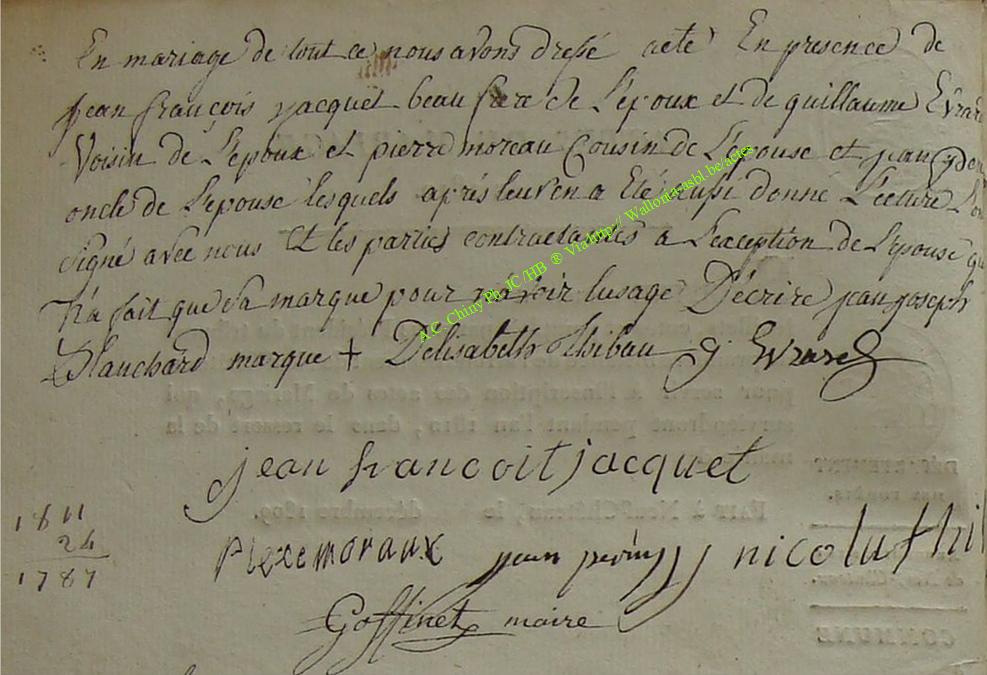 En mariage de tout ce nous avons dressé acte En presence de
jean françois jacquet beau frere de L'epoux et de guillaume Evrard
Voisin de L'epoux et pierre moreau Cousin de L'epouse et jean
oncle de L'epouse lesquels après leur en a Eté aussi donné Lecture L'on
signé avec nous Et les parties contractantes a L'exception de L'epouse qui
N'a fait que sa marque pour n'avoir lusage D'écrire jean joseph
Blanchard marque + D'elisabeth thibau g Evrard
A.C. Chiny Ph. JC /HB ® Via http:// Wallonia-asbl.be/actes
jean francoit jacquet
1811
24
1787
Piexe moraux jean nicola thi
Goffinet maire
pour servir à l'inscription des actes de Mariage, qui
surviendront pendant l'an 1810, dans le ressort de la
FAIT à Neuf-Château, le décembre 1809.
DÉPARTEMENT
COMMUNE